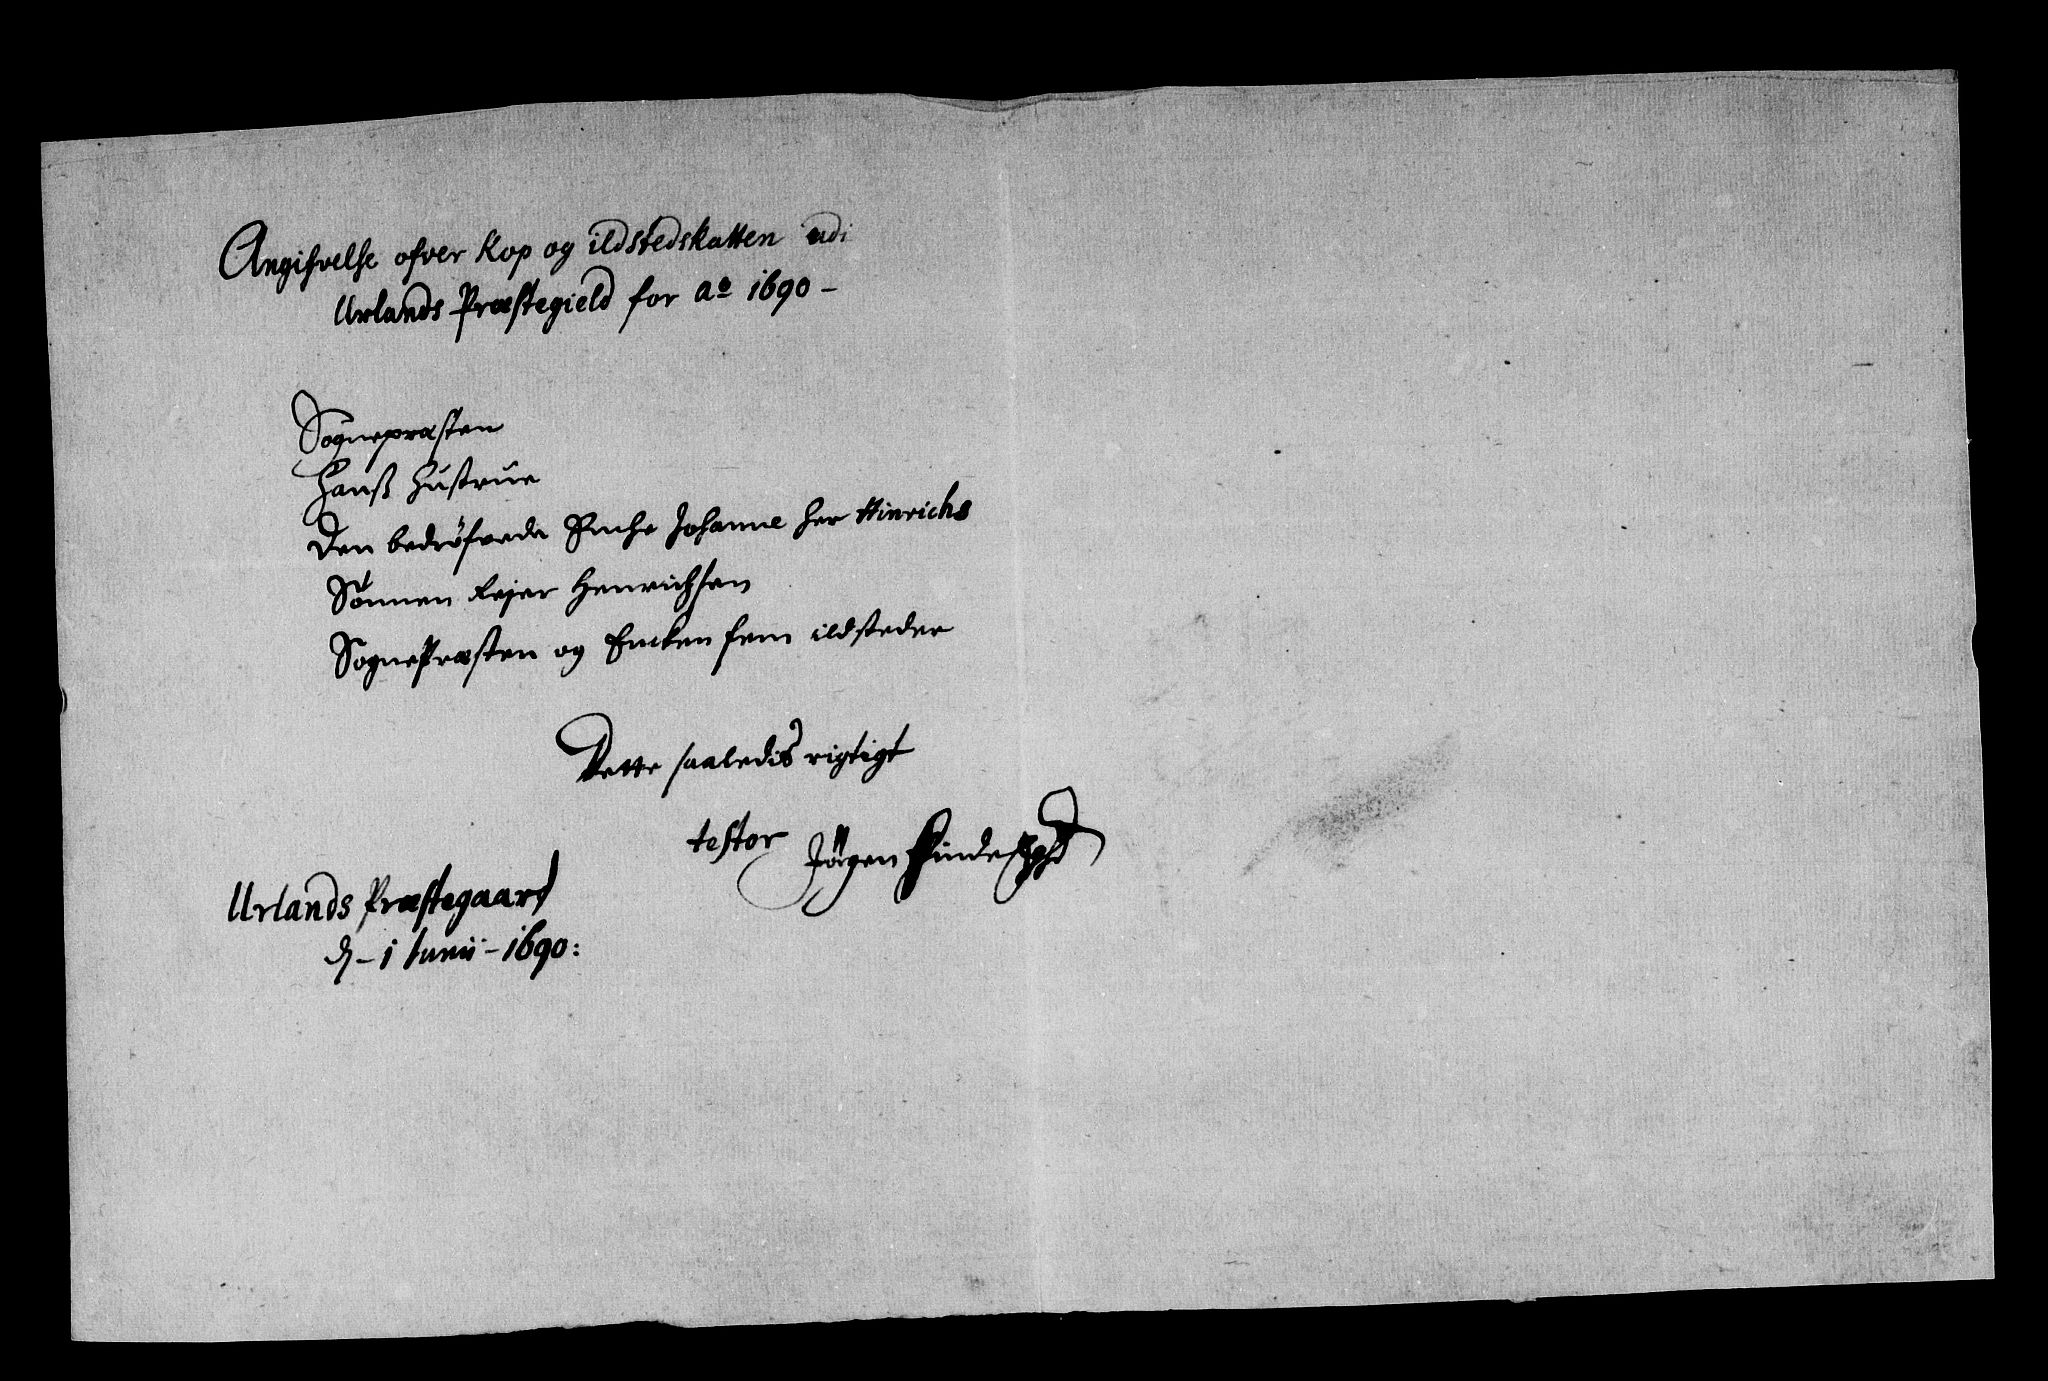 Angifvelse ofver Kop og ildstedskatten udi
Urlands Præstegield for Ao 1690 -
Sognepræsten
Hanß Hustrue
Den bedröfvede Encke Johanne her Hinrichs
Sönnen Lejer Henrichsen
SognePræsten og Encken fem ildsteder
Dette saaledis rigtigt
testor Jörgen
Urlands Præstegaard
d - 1 Junii - 1690: